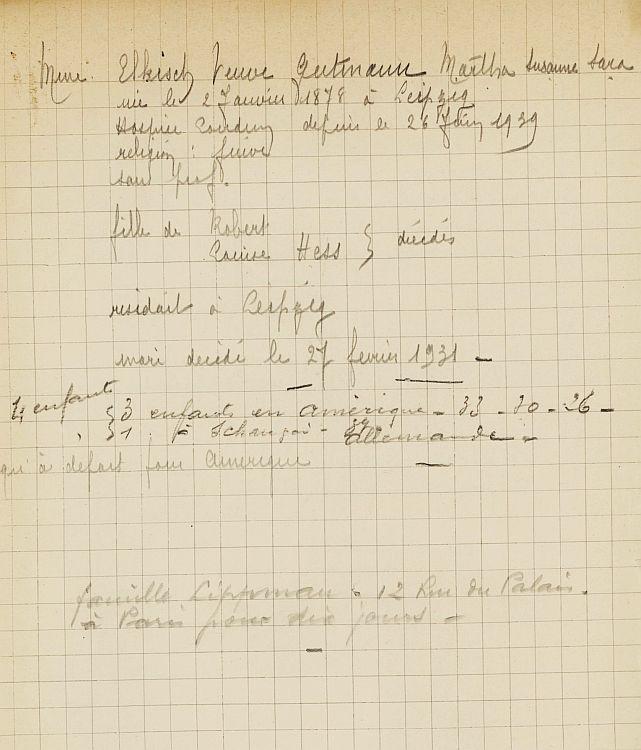 Mme. Elkisch Veuve Gutmann Martha Susanne Sara
née le 2 Janvier 1878 à Leipzig
Hospice depuis le 26 Juin 1939
religion : juive
sans prof.
fille de Robert
Louise Hess } décédés
résidait à Leipzig
mari décédé le 27 février 1931 -
4 enfants { 3 enfants en Amérique - 33 - 30 - 26 -
1 à Schangai - Allemande -
qui à défart pour Amérique
famille Lippman - 12 Rue du Palais.
à Paris pour dix jours -